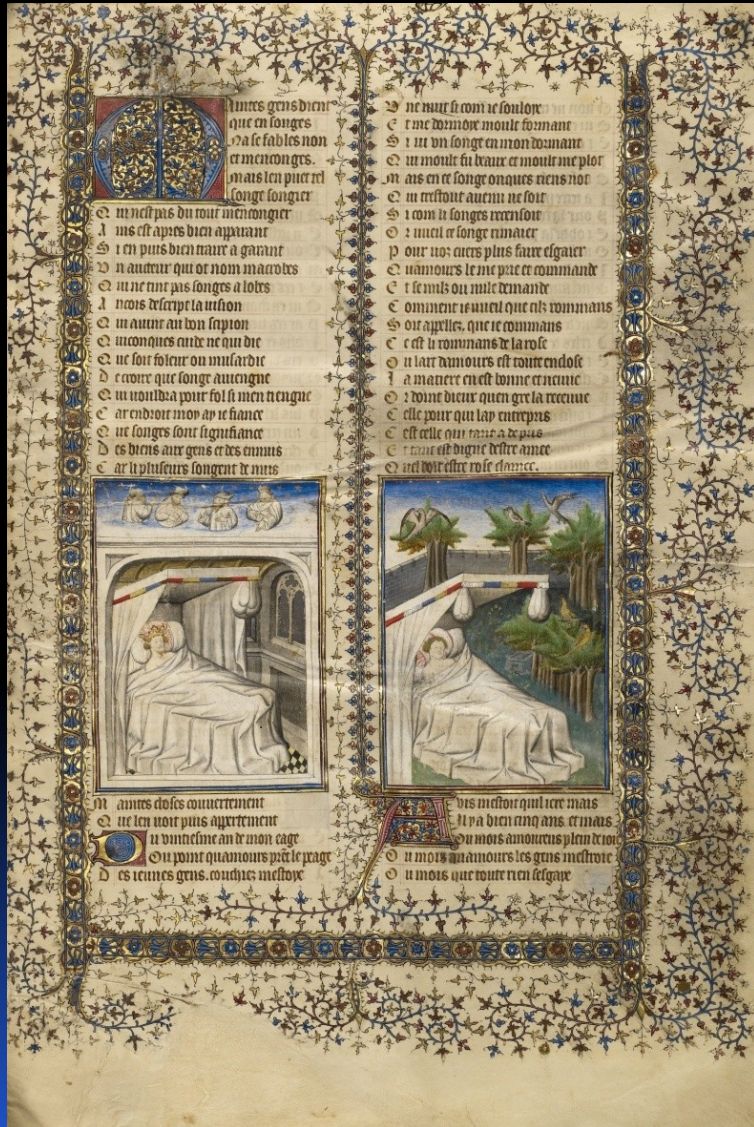 Maintes gens dient
que en songes
Na se fables non
et menconges.
Mais len puet tel
songe songier
Qui nest pas du tout mencongier
Ains est apres bien apparant
Si en puis bien traire a garant
Un aucteur qui ot nom macrobes
Qui ne tint pas songes a lobes
Ancois descript la vision
Qui avint au bon scipion
Quiconques cuide ne qui die
Que soit foleur ou musardie
De croire que songe aviengne
Qui vouldra pour fol si men tiengne
Car endroit moy ay ie fiance
Que songes sont signifiance
Des biens aux gens et des ennuis
Car li pluseurs songent de nuis
Maintes choses couvertement
Que len voit puis appertement
Ou vintiesme an de mon eage
Ou point quamours prent le peage
Des ieunes gens. couchiez mestoye
Une nuit si com ie souloye
Et me dormoye moult forment
Si vi un songe en mon dormant
Qui moult fu beaux et moult me plot
Mais en ce songe onques riens not
Qui trestout avenu ne soit
Si com li songes recensoit
Or vueil ce songe rimaier
Pour voz cuers plus faire esgaier
Quamours le me prie et commande
Et se nulz ou nulle demande
Comment ie vueil que cilz rommans
Soit appellez, que ie commans
Ce est li rommans de la rose
Ou lart damours est toute enclose
La matiere en est bonne et neuve
Or doint dieux quen gre la receuve
Celle pour qui lay entrepris
Cest celle qui tant a de pris
Et tant est digne destre amee
Quel doit estre rose clamee.
Avis mestoit quil iere mais
Il y a bien cinq ans et mais
Ou mois amoureus plein de ioie
Ou mois quamours les gens mestroie
Ou mois que toute rien sesgaye